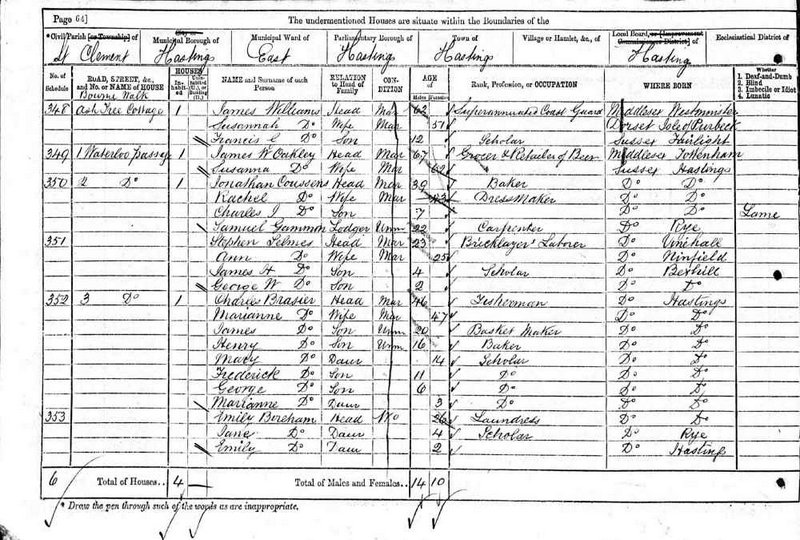 Page 64] The undermentioned Houses are situate within the Boundaries of the
*Civil Parish [or Township] of City or Municipal Borough of Municipal Ward of Parliamentary Borough of Town of Village or Hamlet, &c., of Local Board, or [Improvement Commissioners District] of Ecclesiastical District of
St Clement Hasting East Hasting Hastings Hasting
No. of Schedule ROAD, STREET, &c., and No. or NAME of HOUSE HOUSES Inhabited Uninhabited (U.), or Building (B.) NAME and Surname of each Person RELATION to Head of Family CONDITION AGE of Males Females Rank, Profession, or OCCUPATION WHERE BORN Whether 1. Deaf-and-Dumb 2. Blind 3. Imbecile or Idiot 4. Lunatic
Bourne Walk
348 Ash Tree Cottage 1 James Williams Head Mar 62 Superannuated Coast Guard Middlesex Westminster
Susannah Do Wife Mar 51 Dorset Isle of Purbeck
Francis Do Son 12 Scholar Sussex Fairlight
349 1 Waterloo Passage 1 James W Oakley Head Mar 67 Grocer & Retailer of Beer Middlesex Tottenham
Susanna Do Wife Mar 62 Sussex Hastings
350 2 Do 1 Jonathan Coussens Head Mar 39 Baker Do Do
Rachel Do Wife Mar 43 Dress Maker Do Do
Charles J Do Son 7 Do Do Lame
Samuel Gammon Lodger Unm 22 Carpenter Do Rye
351 Stephen Selmes Head Mar 23 Bricklayer's Laborer Do
Ann Do Wife Mar 25 Do Ninfield
James H Do Son 4 Scholar Do Bexhill
George W Do Son 2 Do Do
352 3 Do 1 Charles Brasier Head Mar 46 Fisherman Do Hastings
Marianne Do Wife Mar 47 Do Do
James Do Son Unm 20 Basket Maker Do Do
Henry Do Son Unm 16 Baker Do Do
Mary Do Daur 14 Scholar Do Do
Frederick Do Son 11 Do Do Do
George Do Son 6 Do Do Do
Marianne Do Daur 3 Do Do Do
353 Emily Boreham Head 26 Laundress Do Do
Jane Do Daur 4 Scholar Do Rye
Emily Do Daur 2 Do Hasting
6 Total of Houses.. 4 Total of Males and Females.. 14 10
* Draw the pen through such of the words as are inappropriate.